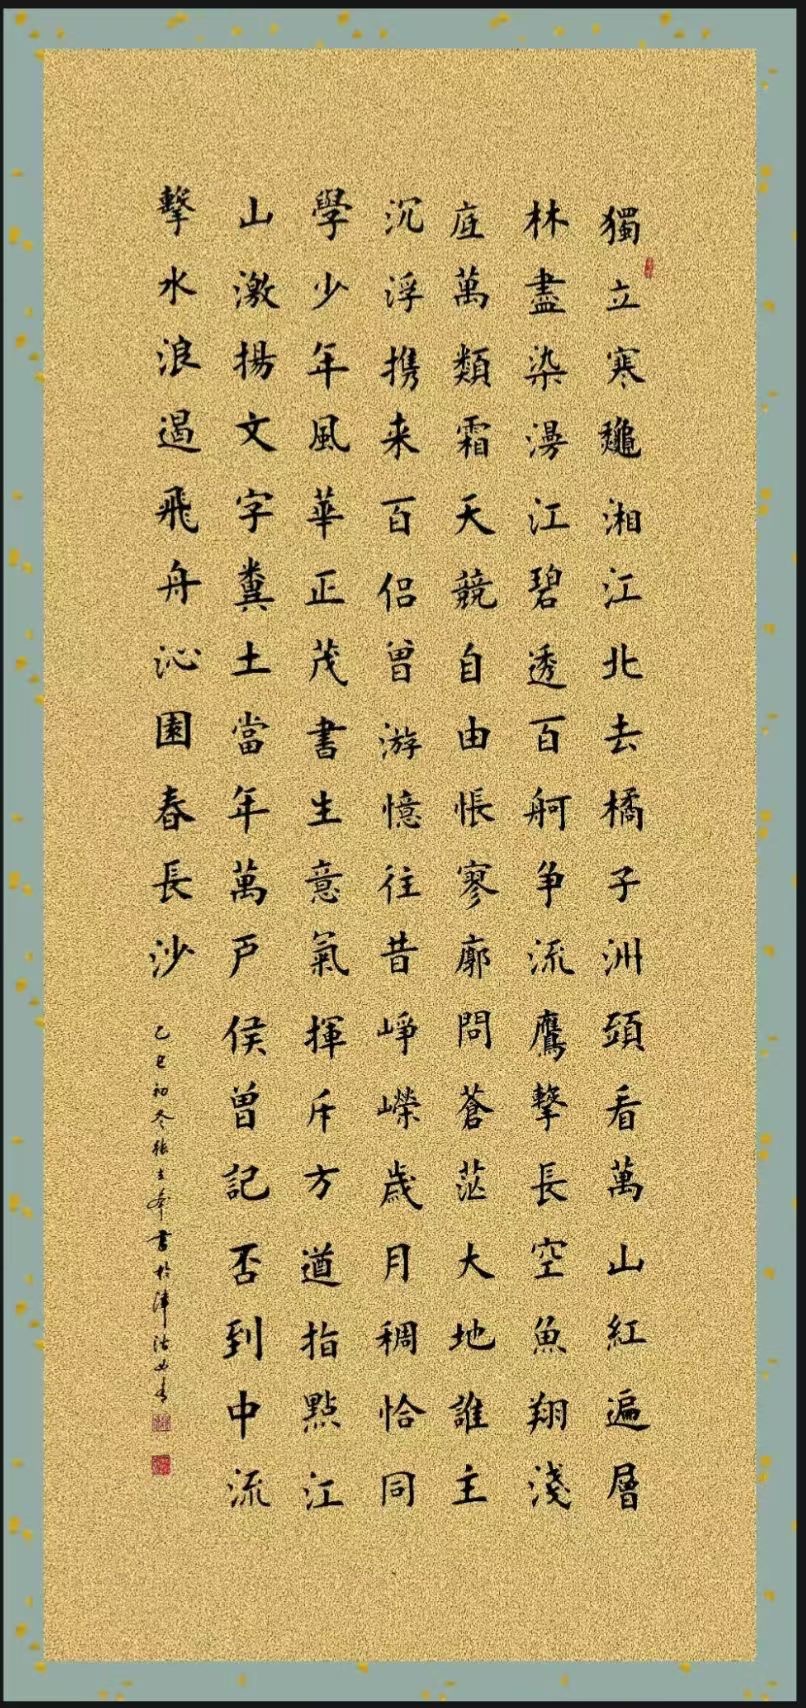 獨立寒龝湘江北去橘子洲頭看萬山紅遍層
林盡染漫江碧透百舸争流鷹擊長空魚翔淺
底萬類霜天競自由悵寥廓問蒼茫大地誰主
沉浮携来百侣曾游憶往昔崢嶸歲月稠恰同
學少年風華正茂書生意氣揮斥方遒指點江
山激揚文字糞土當年萬户侯曾記否到中流
擊水浪遏飛舟沁園春長沙
乙巳初冬張書於津沽